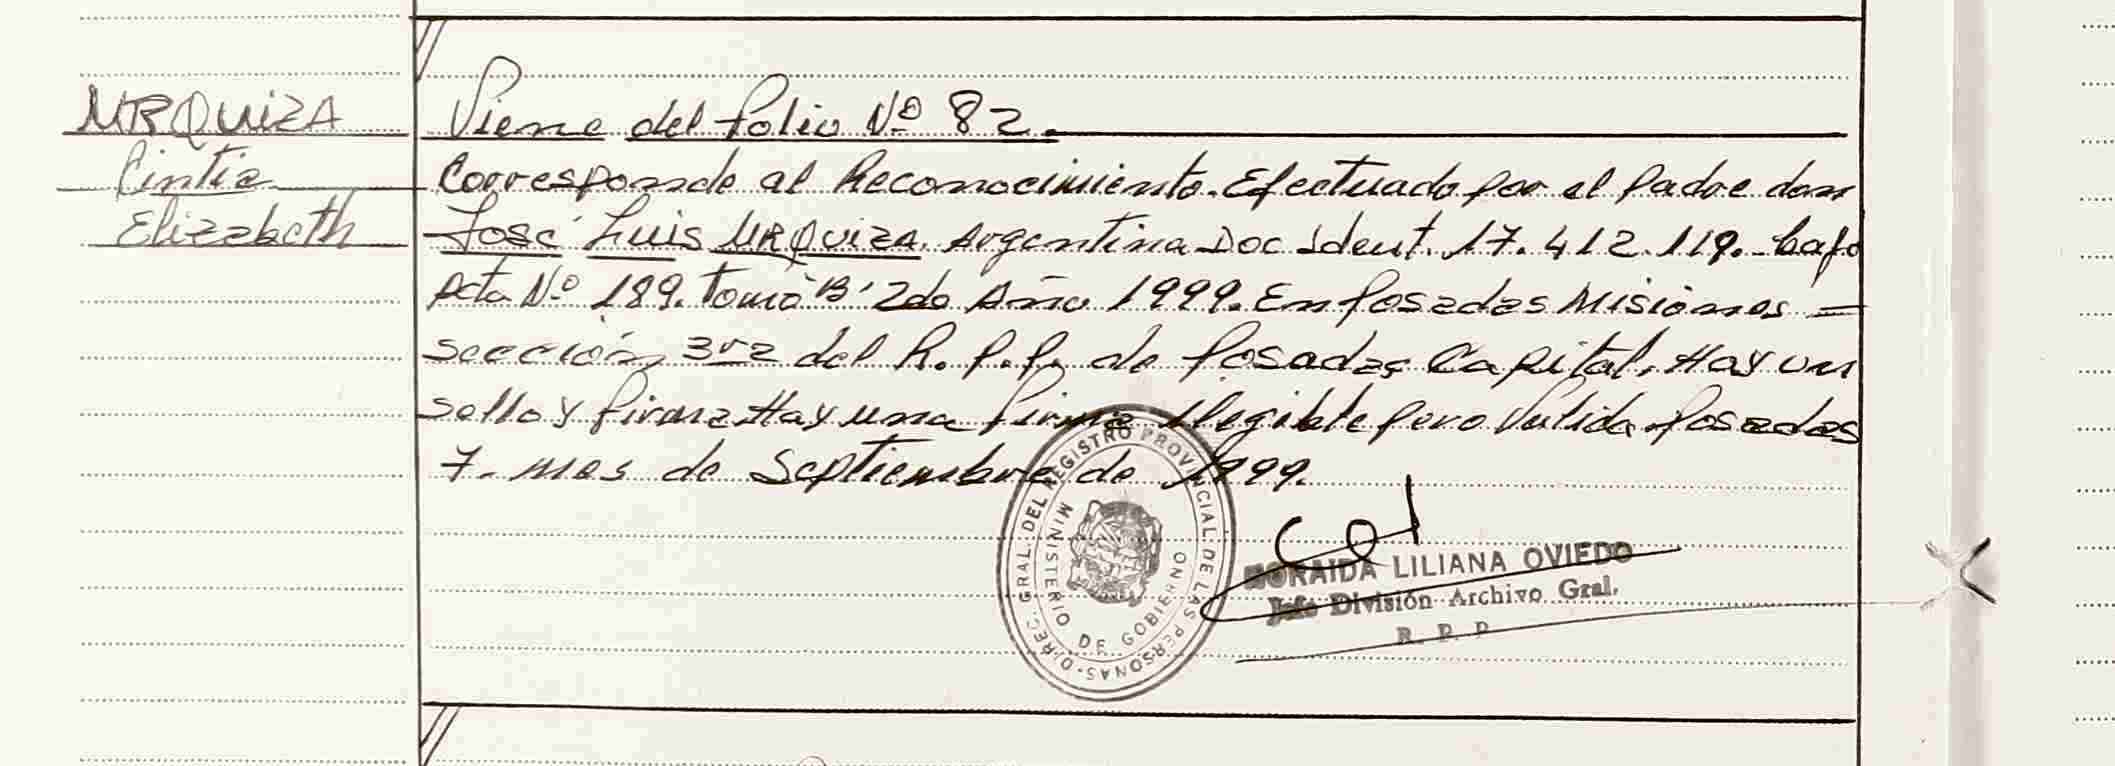 URQUIZA
Cintia
Elizabeth
Viene del folio Nº 82.
Corresponde al Reconocimiento. Efectuado por el Padre don
José Luis URQUIZA. Argentina Doc Ident. 17.412.119. bajo
Acta Nº 189. Tomo "B" 2do Año 1999. En Posadas Misiones =
sección 3ra del R.P.P. de Posadas Capital. Hay un
sello y firma Hay una firma Ilegible pero Valida. Posadas
7. mes de Septiembre de 1999.
DIREC. GRAL. DEL REGISTRO PROVINCIAL DE LAS PERSONAS
MINISTERIO DE GOBIERNO
ZORAIDA LILIANA OVIEDO
Jefe División Archivo Gral.
R. P. P.